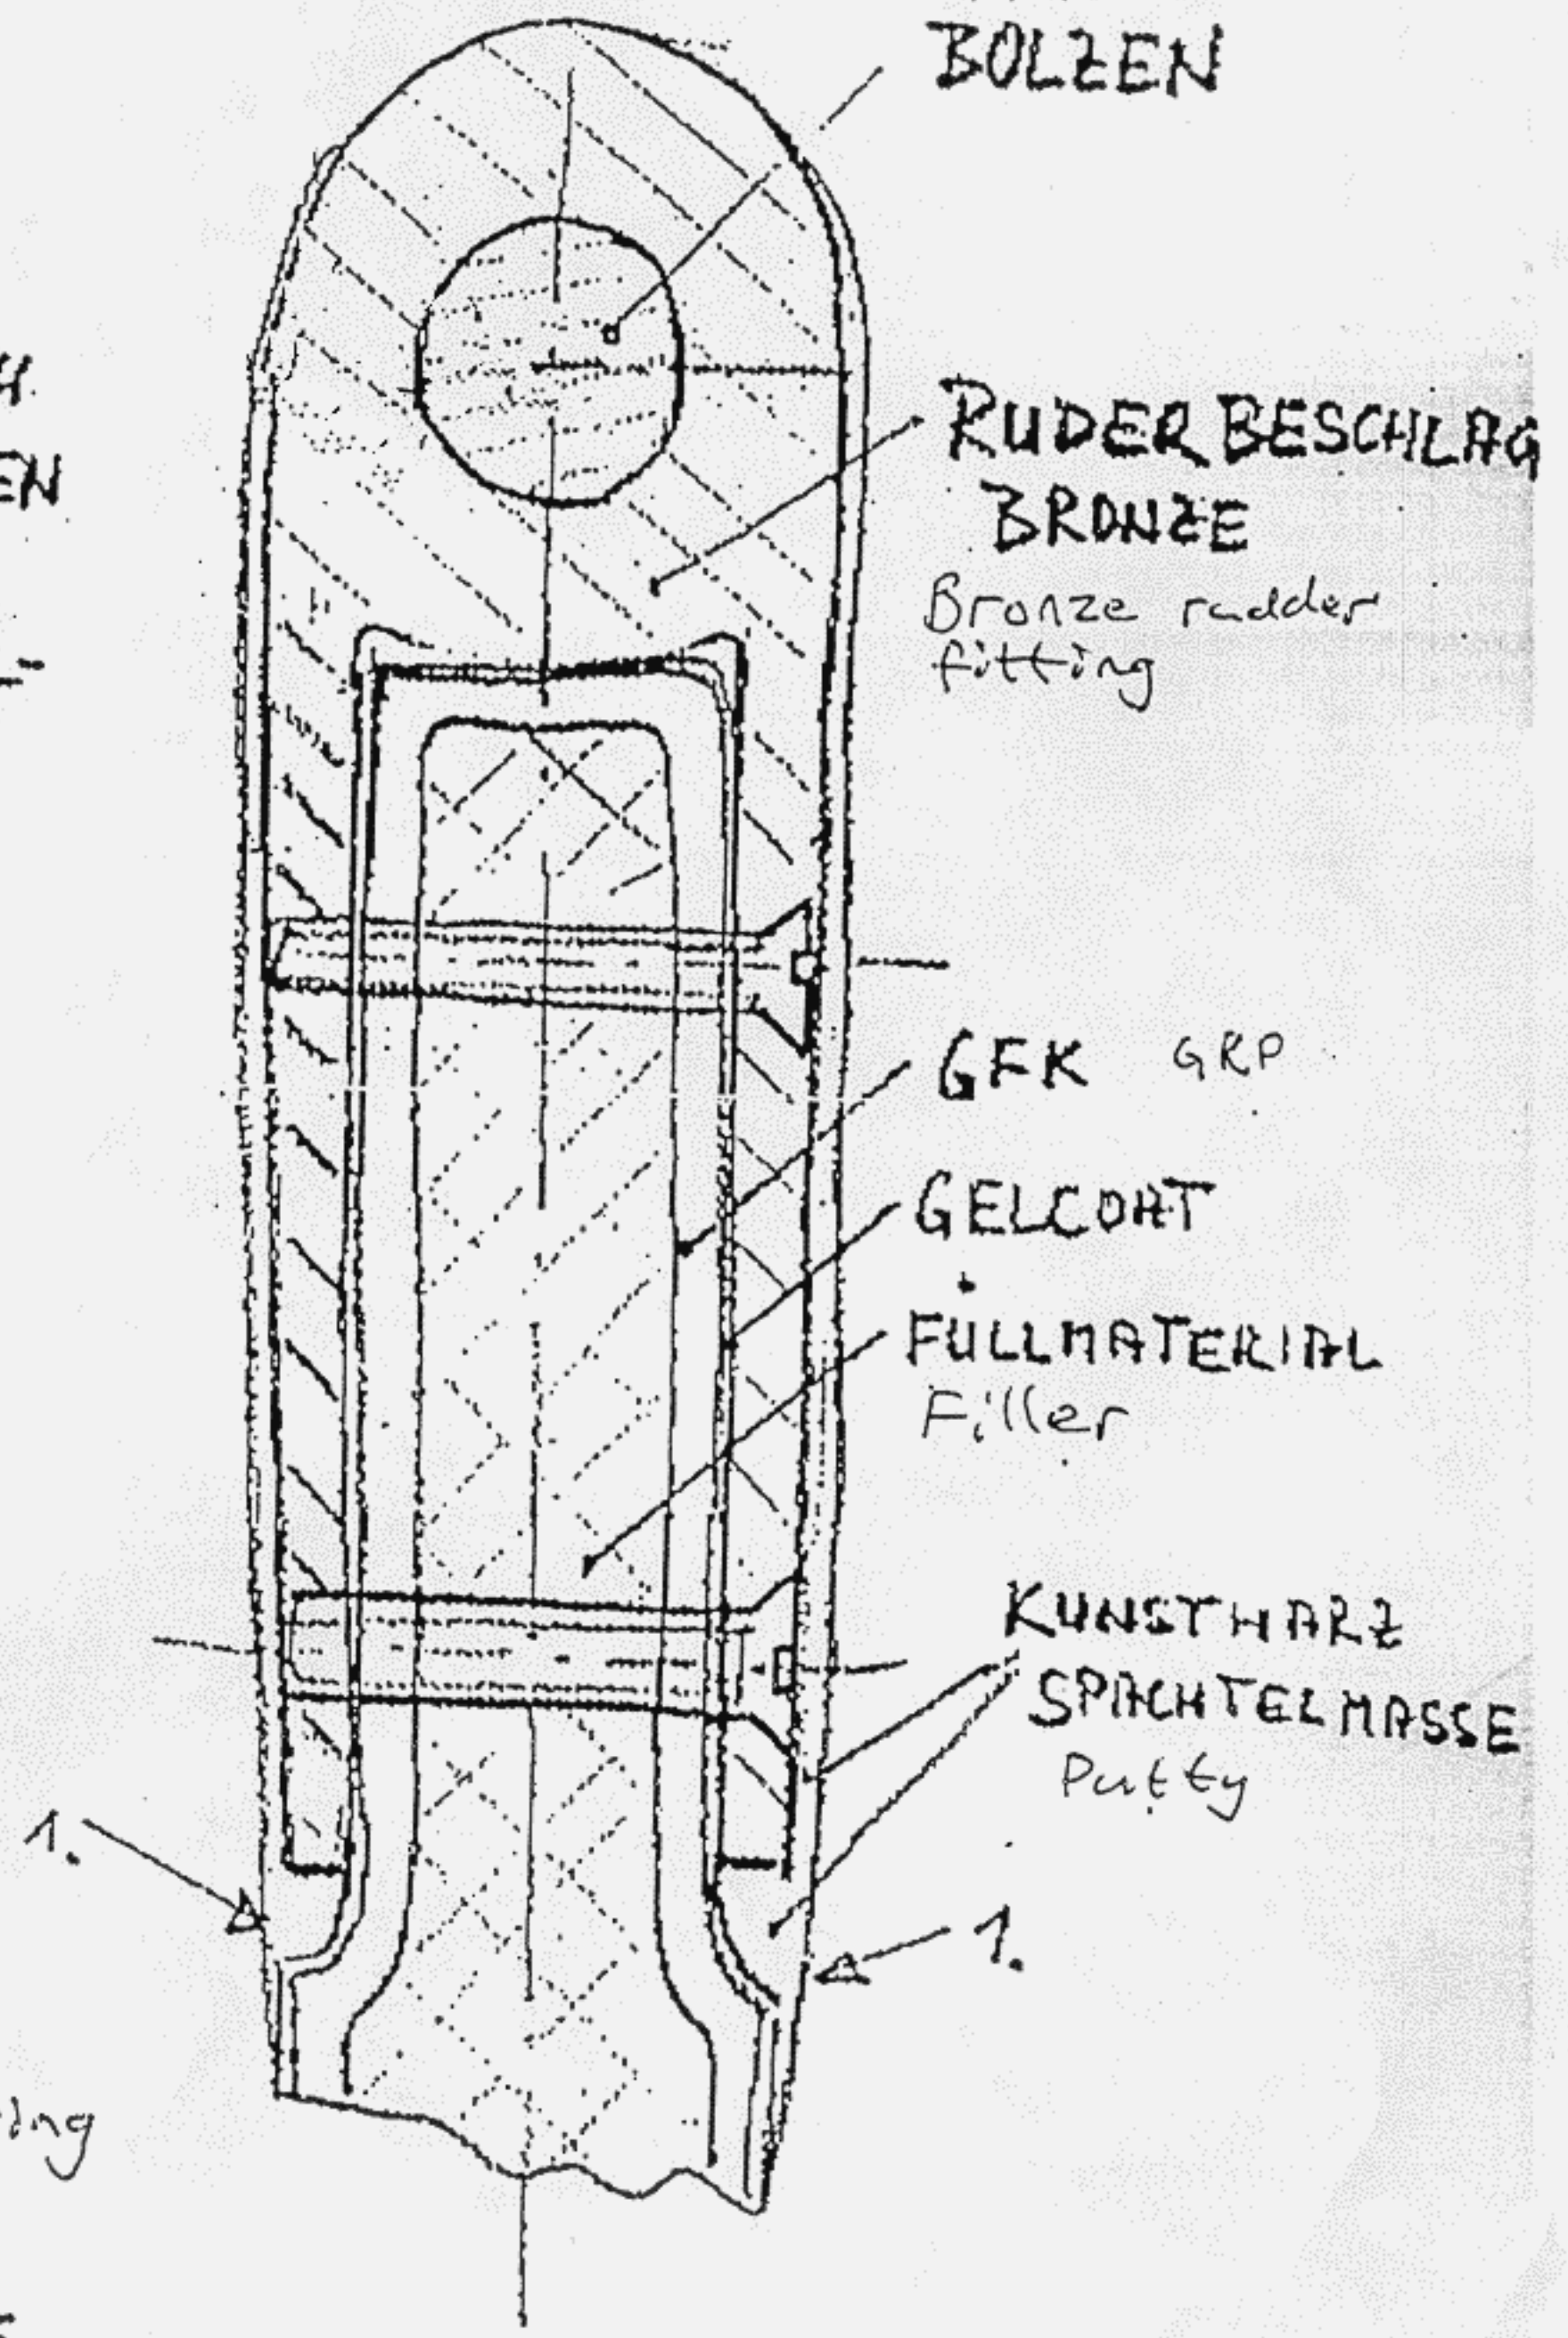 BOLZEN
RUDERBESCHLAG
BRONZE
Bronze rudder
fitting
GFK GRP
GELCOAT
FÜLLMATERIAL
Filler
KUNSTHARZ
SPACHTELMASSE
Putty
1.
1.